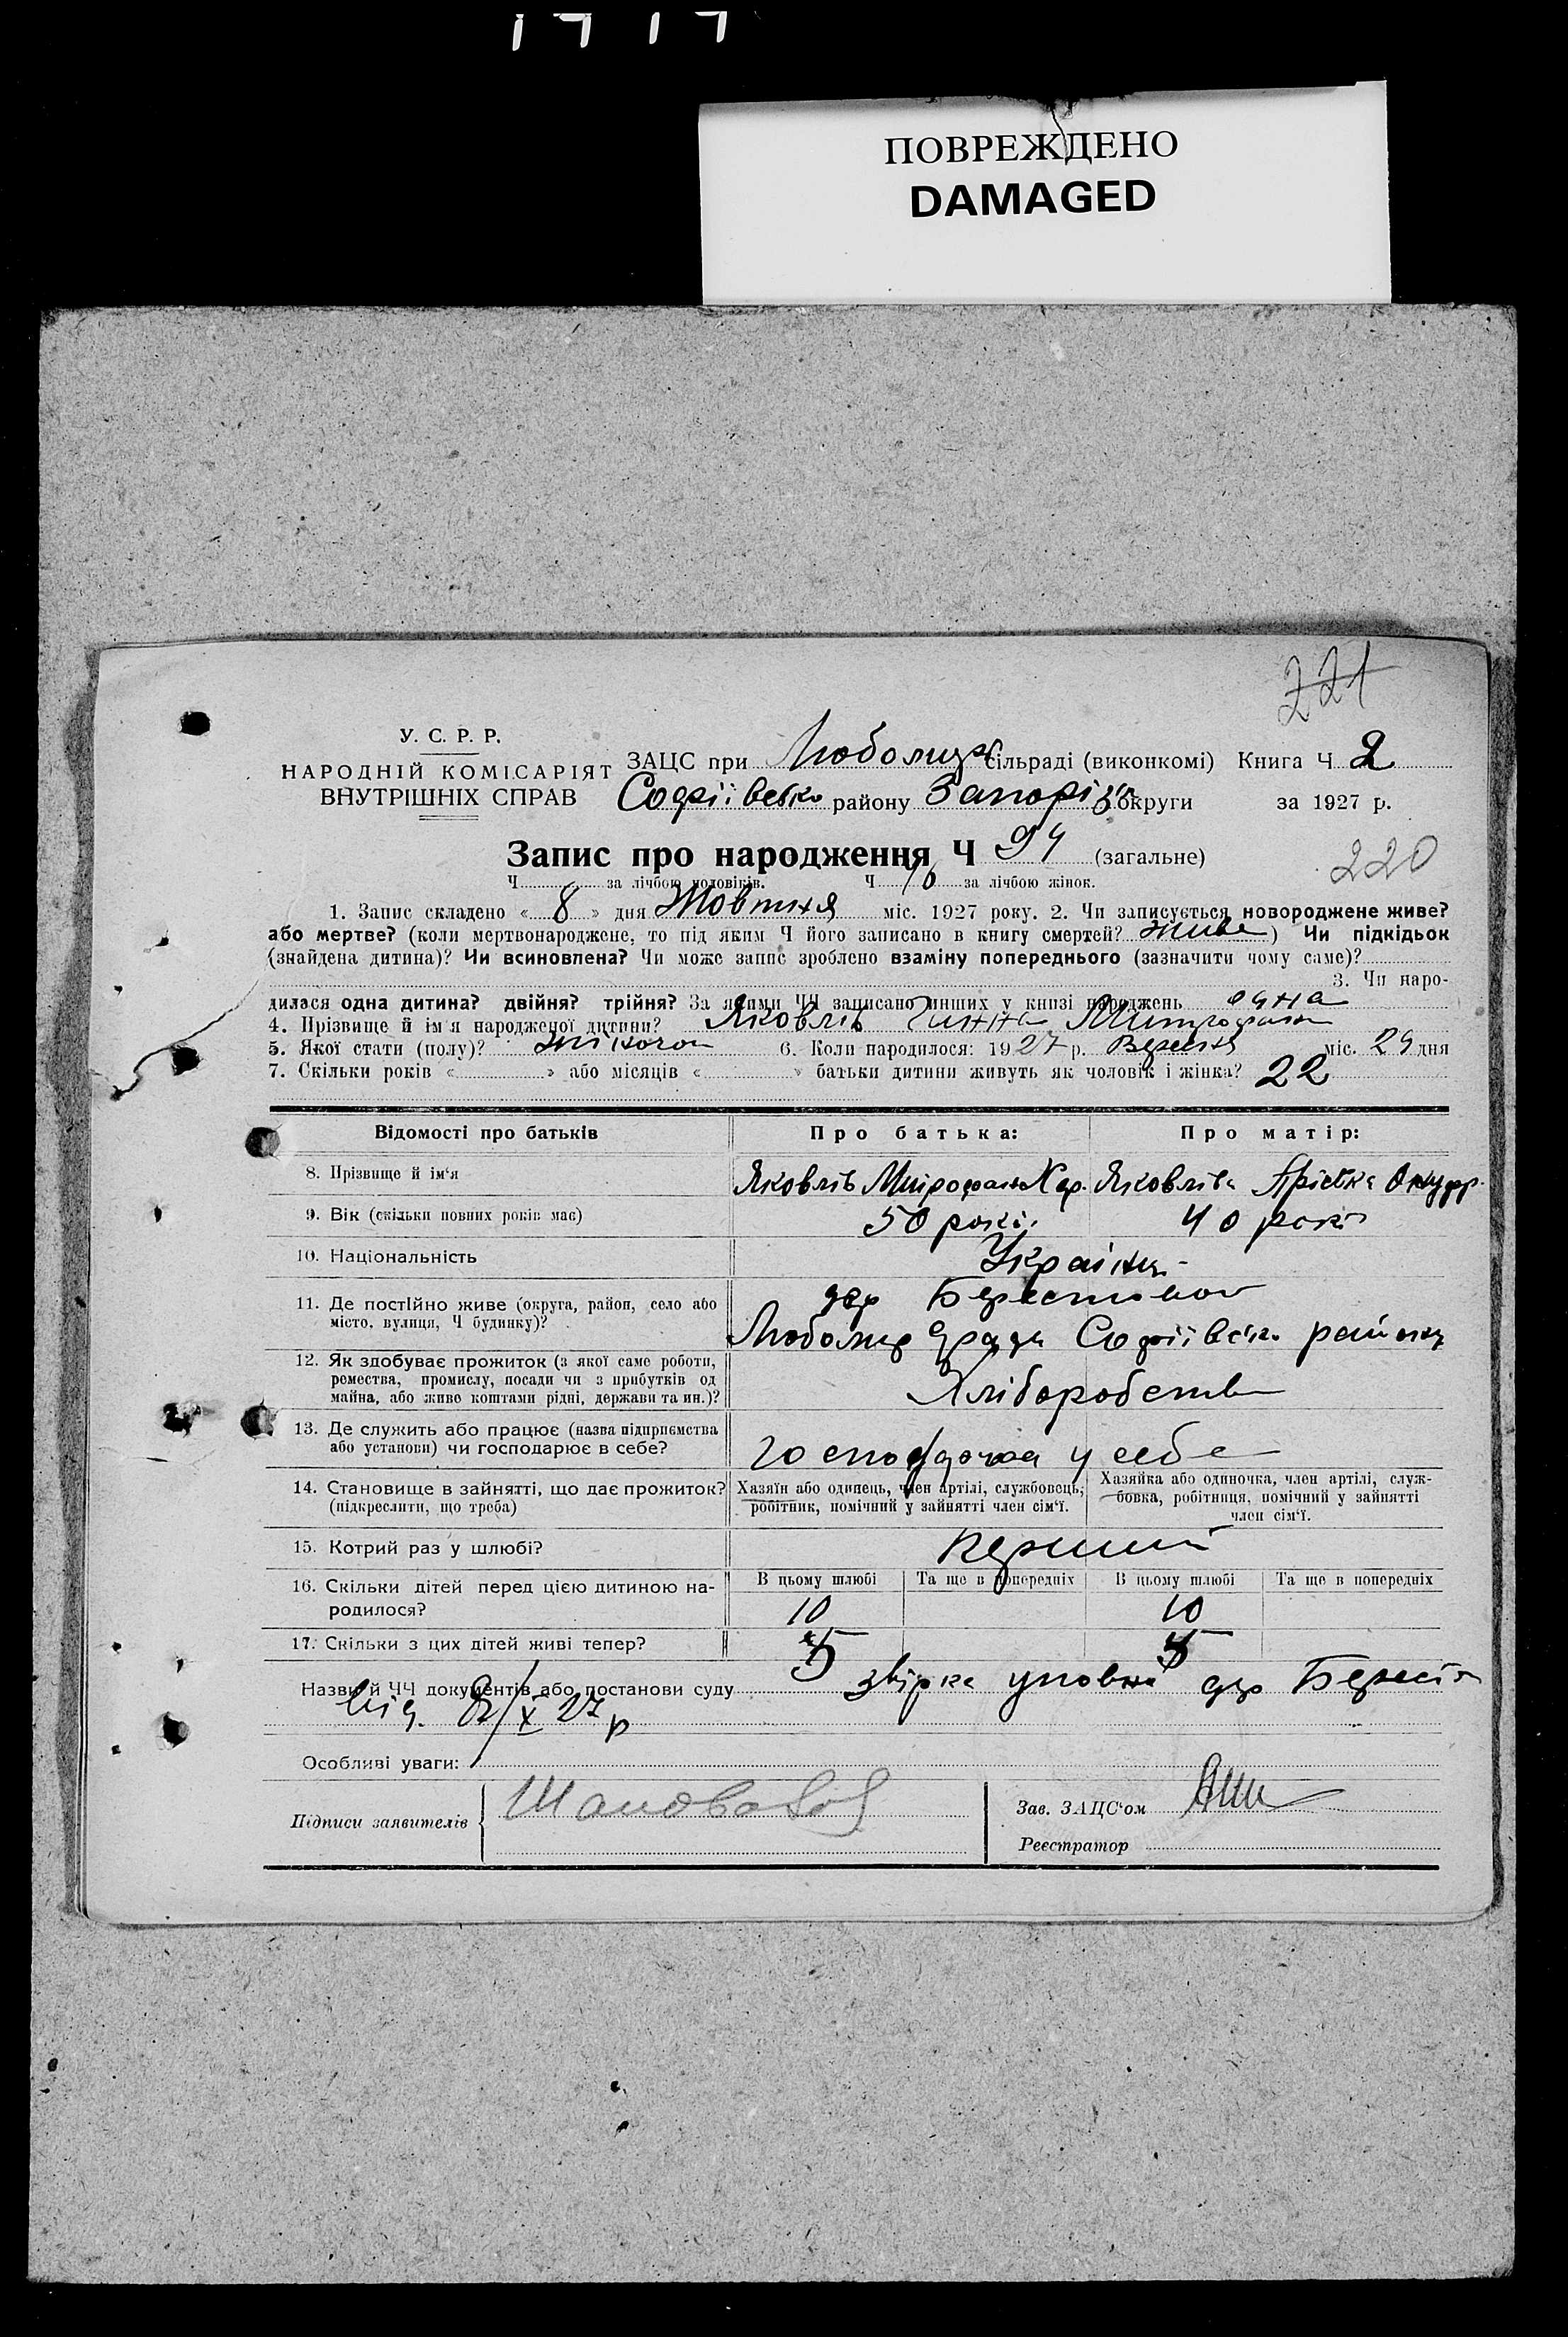 ПОВРЕЖДЕНО
DAMAGED
221
У. С. Р. Р.
НАРОДНІЙ КОМІСАРІЯТ
ВНУТРІШНІХ СПРАВ
ЗАЦС при Любомир сільраді (виконкомі) Книга Ч 2
Софіївськ району Запоріз округи за 1927 р.
Запис про народження Ч 94 (загальне)
220
Ч за лічбою чоловіків. Ч за лічбою жінок.
1. Запис складено « 8 » дня Жовтня міс. 1927 року. 2. Чи записується новороджене живе?
або мертве? (коли мертвонароджене, то під яким Ч його записано в книгу смертей? живе ) Чи підкідьок
(знайдена дитина)? Чи всиновлена? Чи може запис зроблено взаміну попереднього (зазначити чому саме)?
3. Чи наро-
дилася одна дитина? двійня? трійня? За якими ЧЧ записано инших у книзі народжень одна
4. Прізвище й ім'я народженої дитини? Яковлів Ганна Митрофан
5. Якої стати (полу)? жіночої 6. Коли народилося: 1927 р. Вересня міс. 29 дня
7. Скільки років « » або місяців « » батьки дитини живуть як чоловік і жінка? 22
Відомості про батьків Про батька: Про матір:
8. Прізвище й ім'я Яковлів Митрофан Хар. Яковліва Онуфр.
9. Вік (скільки повних років має) 50 років 40 років
10. Національність Українц
11. Де постійно живе (округа, район, село або
місто, вулиця, Ч будинку)?
дер Берестовой
Любомир ради Софіївськ району
12. Як здобуває прожиток (з якої саме роботи,
ремества, промислу, посади чи з прибутків од
майна, або живе коштами рідні, держави та ин.)?
Хліборобств
13. Де служить або працює (назва підприємства
або установи) чи господарює в себе?
у себе
14. Становище в зайнятті, що дає прожиток?
(підкреслити, що треба)
Хазяїн або одинець, член артілі, службовець,
робітник, помічний у зайнятті член сім'ї.
Хазяйка або одиночка, член артілі, служ-
бовка, робітниця, помічний у зайнятті
член сім'ї.
15. Котрий раз у шлюбі? Перший
16. Скільки дітей перед цією дитиною на-
родилося?
В цьому шлюбі Та ще в попередніх В цьому шлюбі Та ще в попередніх
10 10
17. Скільки з цих дітей живі тепер? 5 5
Назви й ЧЧ документів або постанови суду дер
від 8/X 27 р
Особливі уваги:
Підписи заявителів
Зав. ЗАЦС'ом
Реєстратор